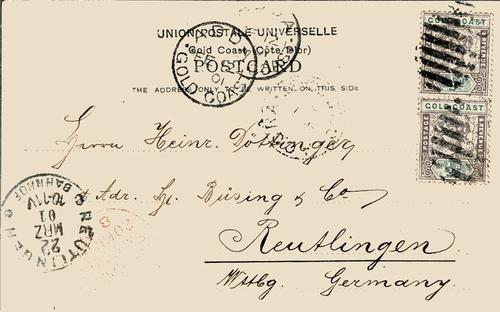 UNION POSTALE UNIVERSELLE
Gold Coast (Côte d'or)
POSTCARD
THE ADDRESS ONLY TO BE WRITTEN ON THIS SIDE
GOLD COAST
GOLD COAST
POSTAGE
GOLD COAST
FE
01
Herrn Heinr. Döttinger
Adr. H. Büsing & Co
Reutlingen
Wttbg. Germany
REUTLINGEN
BAHNHOF
22
MRZ
01
10-11V